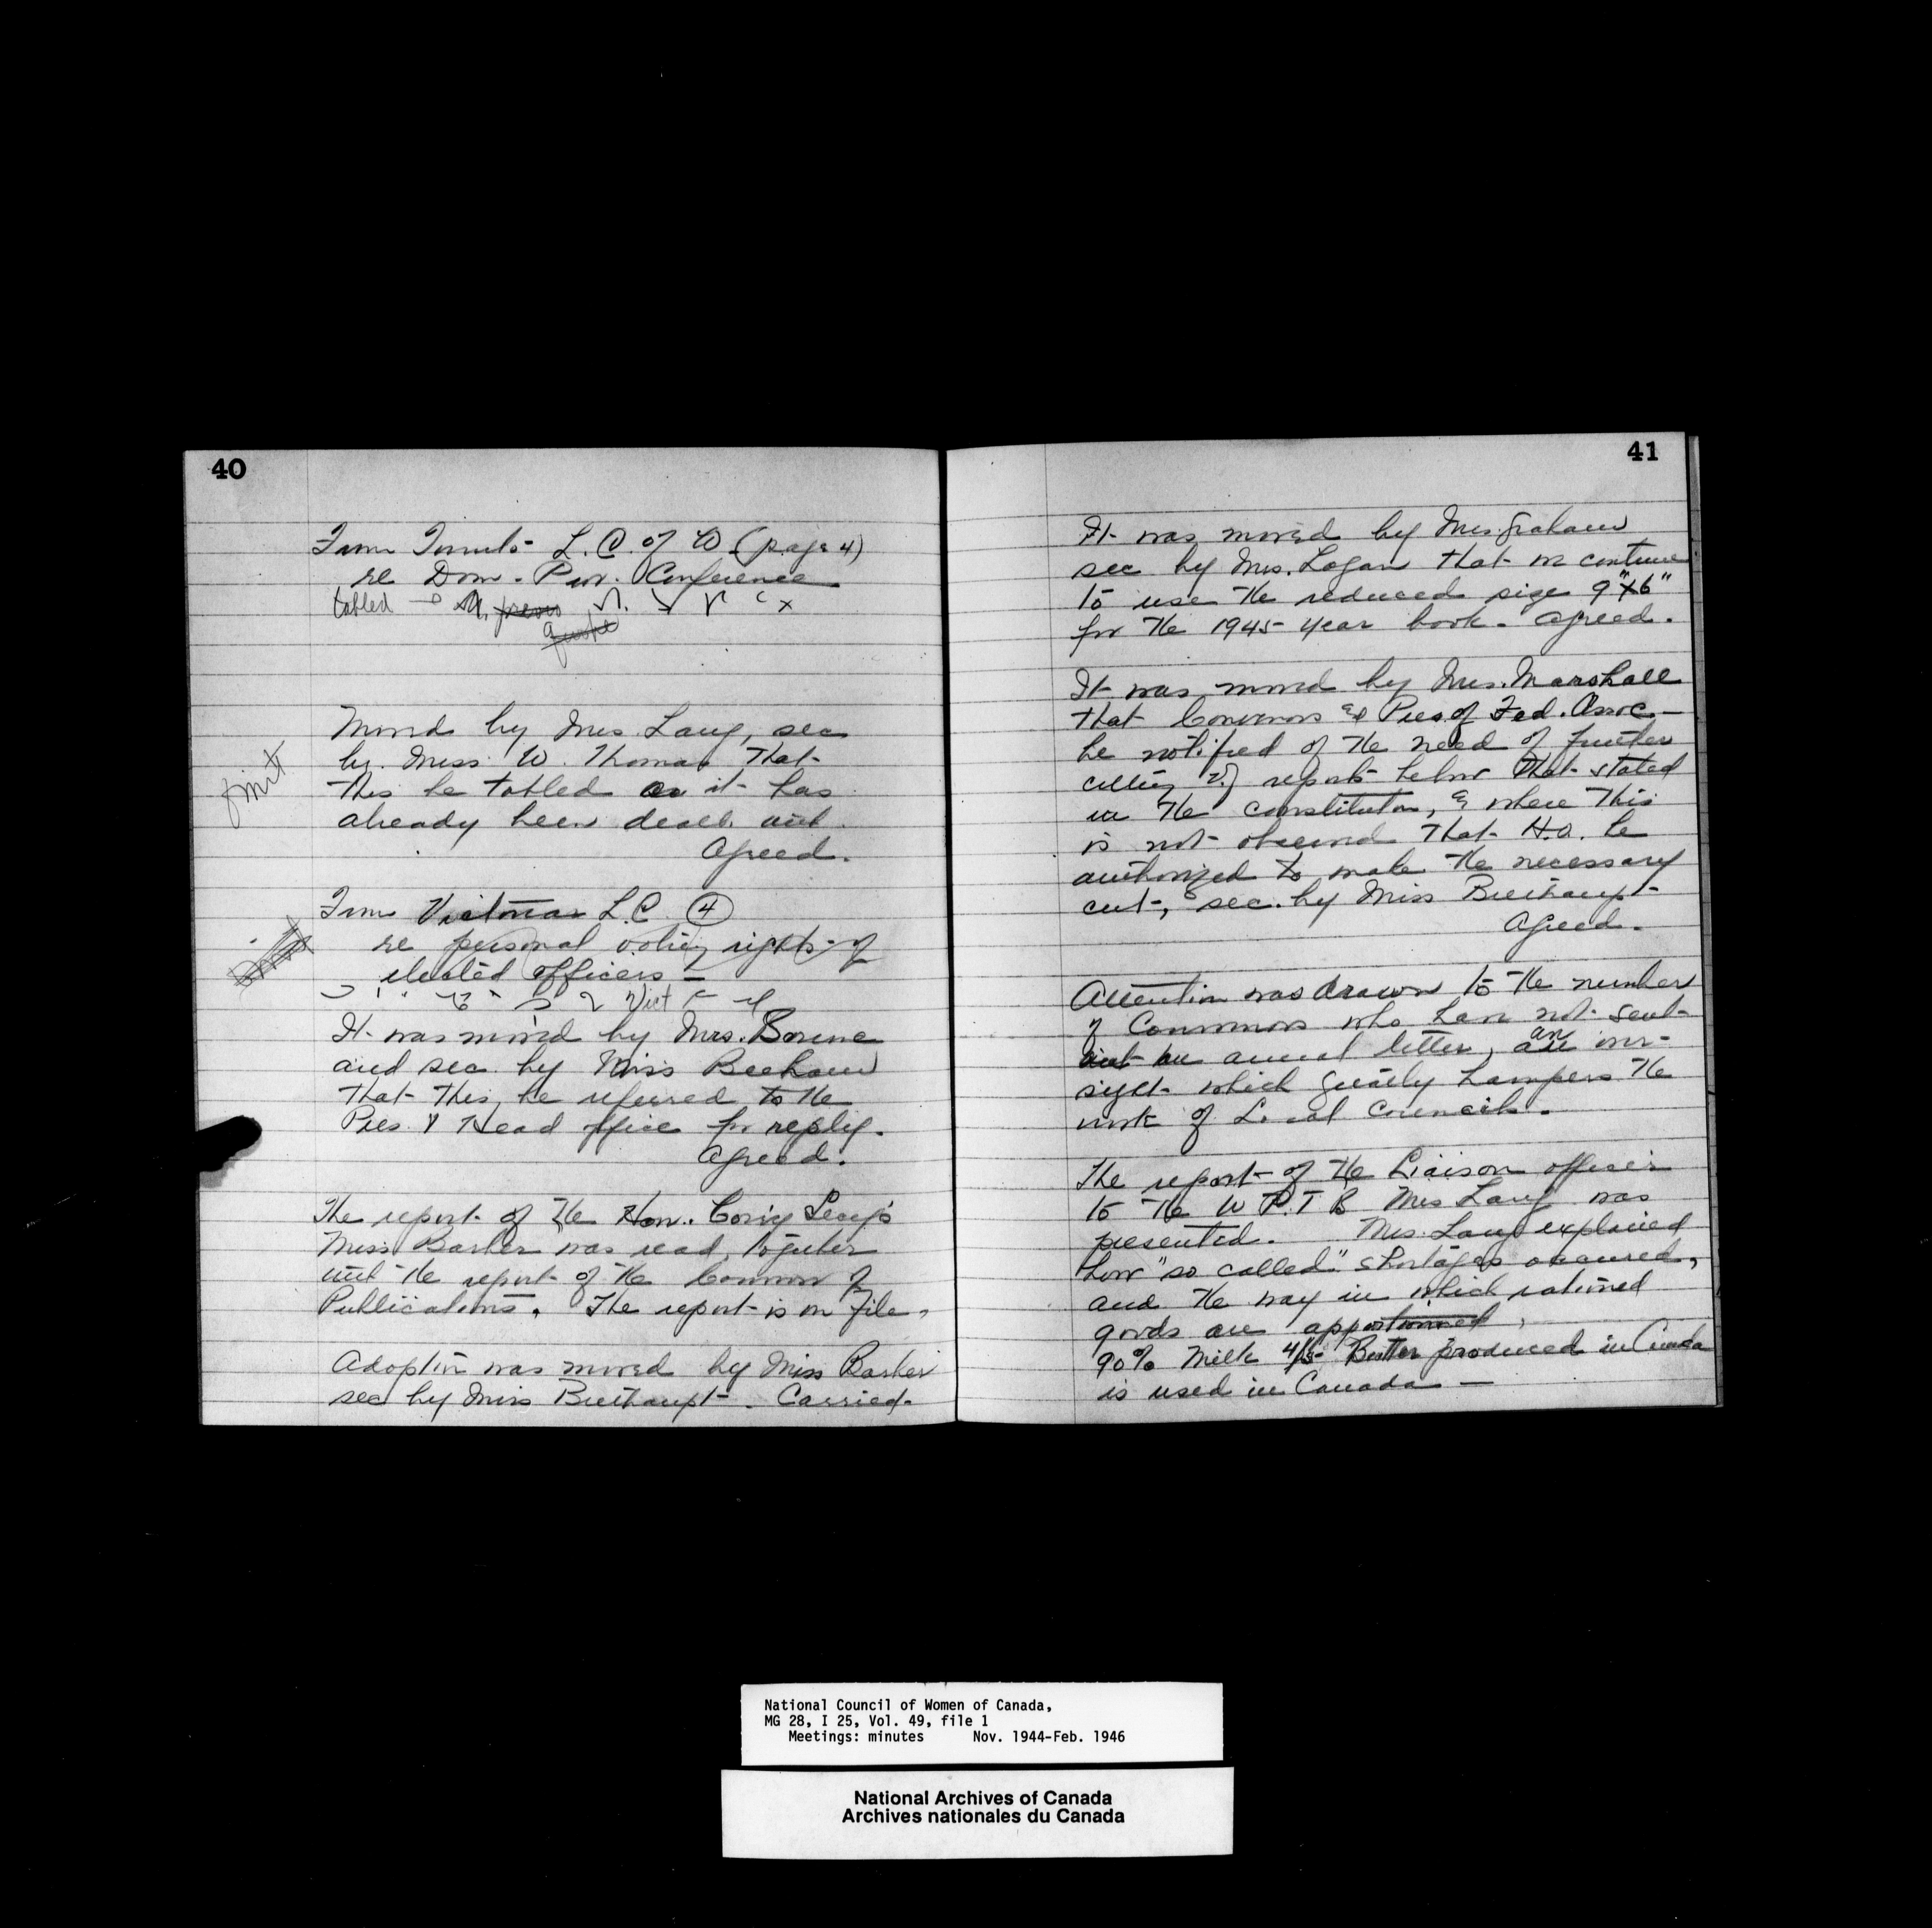 40
From Toronto L.C. of W (page 4)
re Dom. Prov. Conference
tabled
Moved by Mrs. Lang, sec
by Miss W. Thomas That
This be tabled as it has
already been dealt with
Agreed.
omit
From Victoria L.C. 4
re personal voting rights of
elected officers –
Vict
It was moved by Mrs. Bourne
and sec by Miss
that this be referred to the
Pres & Head office for reply.
Agreed.
The report of the Hon. Corr'g Secy's
Miss Barker was read, together
with the report of the Convenor of
Publications. The report is on file.
Adoption was moved by Miss Barker
sec by Miss Breithaupt. Carried.
41
It was moved by Mrs. Graham
sec by Mrs. Logan that we continue
to use the reduced size 9"x6"
for the 1945 year book. Agreed.
It was moved by Mrs. Marshall
that Convenors & Pres of Fed. Assoc.
be notified of the need of further
cutting of reports below that stated
in the constitution, & where this
is not observed that H.O. be
authorized to make the necessary
cut, sec. by Miss Breithaupt
Agreed.
Attention was drawn to the number
of Convenors who have not sent
out an annual letter, an over-
sight which greatly hampers the
work of Local Councils.
The report of the Liaison officer
to the W P.T B Mrs Lang was
presented. Mrs. Lang explained
how "so called" shortages occured,
and the way in which rationed
goods are apportioned,
90% Milk 4/5 Butter produced in Canada
is used in Canada –
National Council of Women of Canada,
MG 28, I 25, Vol. 49, file 1
Meetings: minutes Nov. 1944-Feb. 1946
National Archives of Canada
Archives nationales du Canada